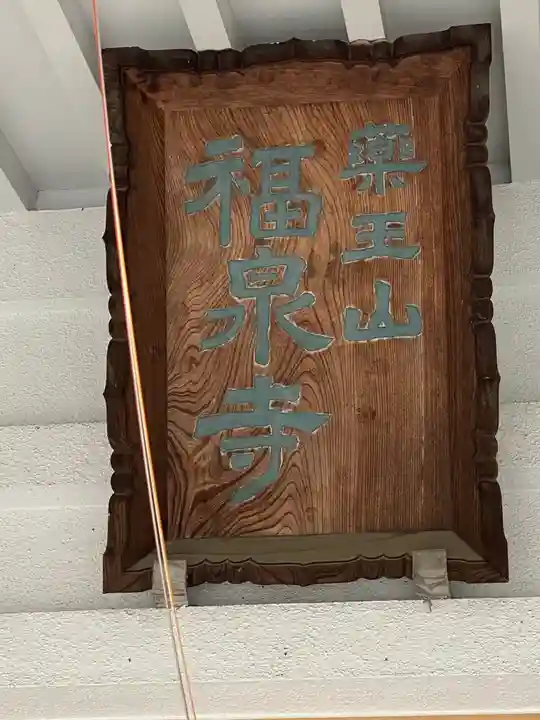 薬王山
福泉寺